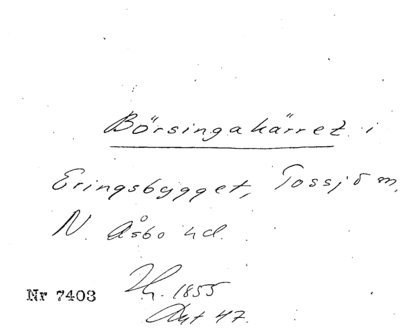 Börsingakärret i
Eringsbygget, Tossjö m,
N. Åsbo hd.
Nr 7403
1855
Akt 47.